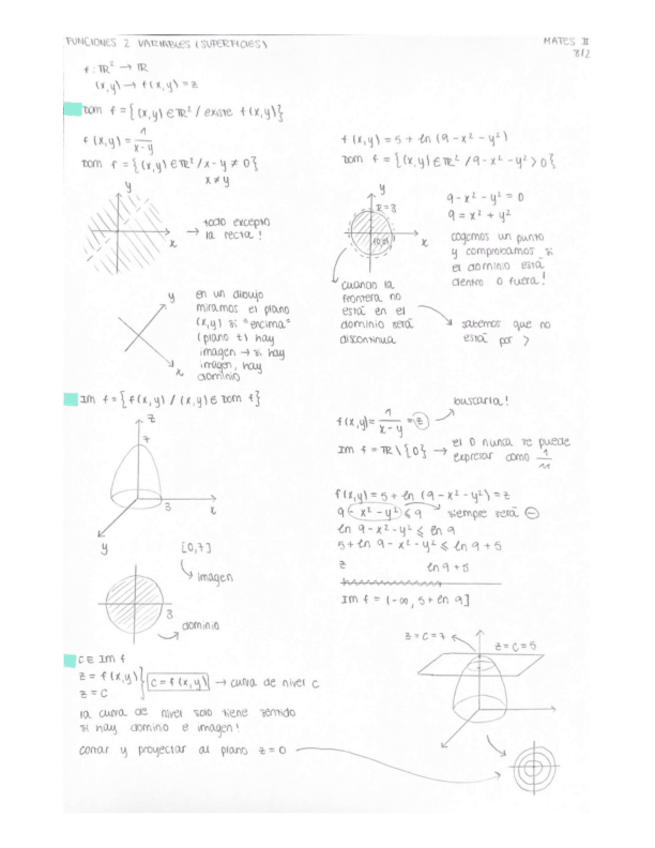 FUNCIONES 2 VARIABLES (SUPERFICIES)
MATES II
8/2
f: ℝ² → ℝ
(x,y) → f(x,y) = z
Dom f = {(x,y) ∈ ℝ² / existe f(x,y)}
f(x,y) = 1/(x-y)
Dom f = {(x,y) ∈ ℝ² / x-y ≠ 0}
x ≠ y
y
x
→ todo excepto
la recta!
y
x
en un dibujo
miramos el plano
(x,y) si "encima"
(plano z) hay
imagen → si hay
imagen, hay
dominio
f(x,y) = 5 + ln (9 - x² - y²)
Dom f = {(x,y) ∈ ℝ² / 9 - x² - y² > 0}
y
R = 3
(0,0)
x
9 - x² - y² = 0
9 = x² + y²
cogemos un punto
y comprobamos si
el dominio está
dentro o fuera!
cuando la
frontera no
está en el
dominio será
discontinua
sabemos que no
está por >
Im f = {f(x,y) / (x,y) ∈ Dom f}
z
7
3
x
y
[0,7]
imagen
3
dominio
buscarla!
f(x,y) = 1/(x-y) = z
Im f = ℝ \ {0} → el 0 nunca se puede
expresar como
f(x,y) = 5 + ln (9 - x² - y²) = z
9 - x² - y² ≤ 9 siempre será ⊖
ln 9 - x² - y² ≤ ln 9
5 + ln 9 - x² - y² ≤ ln 9 + 5
z
ln 9 + 5
Im f = (-∞, 5 + ln 9]
C ∈ Im f
z = f(x,y)
z = C
C = f(x,y) → curva de nivel C
la curva de nivel solo tiene sentido
si hay dominio e imagen!
cortar y proyectar al plano z = 0
z = C = 7
z = C = 5